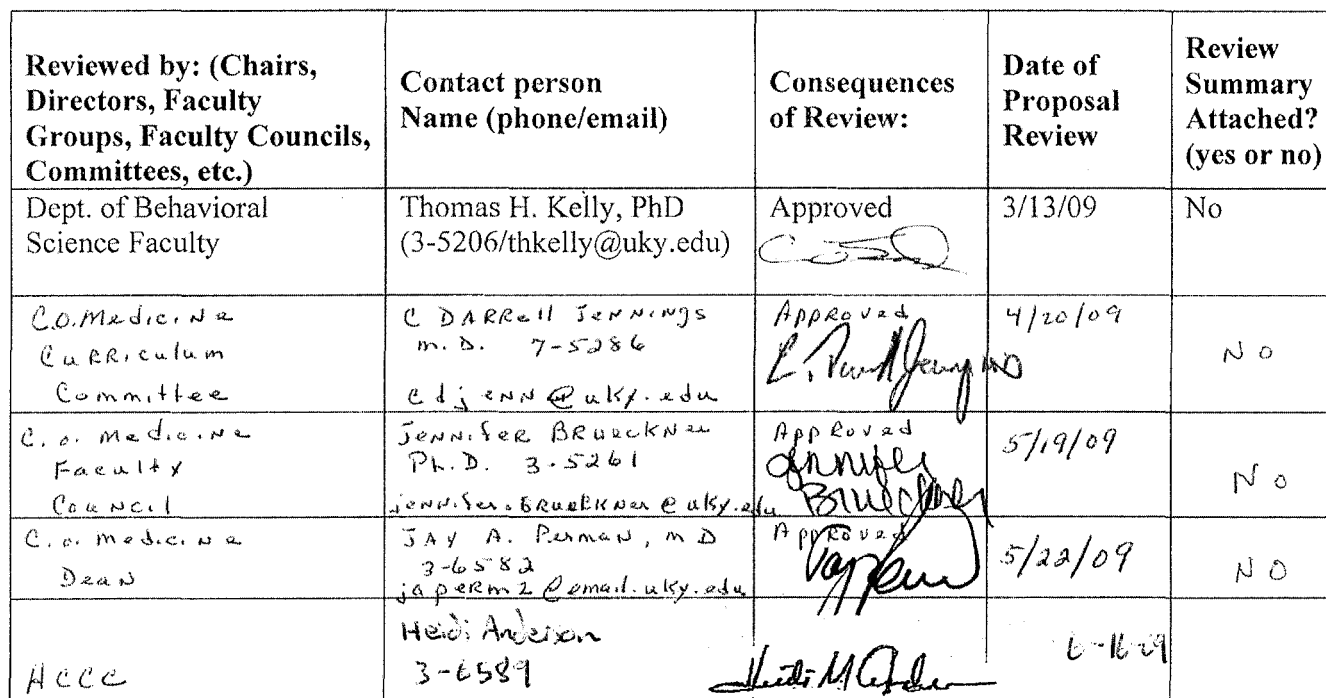 Reviewed by: (Chairs,
Directors, Faculty
Groups, Faculty Councils,
Committees, etc.)
Contact person
Name (phone/email)
Consequences
of Review:
Date of
Proposal
Review
Review
Summary
Attached?
(yes or no)
Dept. of Behavioral
Science Faculty
Thomas H. Kelly, PhD
(3-5206/thkelly@uky.edu)
Approved
3/13/09
No
C.O. Medicine
Curriculum
Committee
C DARRell Jennings
M.D. 7-5286
cdjenn@uky.edu
Approved
4/20/09
No
C.O. Medicine
Faculty
Council
Jennifer BRueckner
Ph.D. 3-5261
jennifer.BRueckner@uky.edu
Approved
Jennifer
Brueckner
5/19/09
No
C.O. Medicine
Dean
JAY A. PermaN, MD
3-6582
japerm2@email.uky.edu
Approved
5/22/09
NO
HCCC
Heidi Anderson
3-6589
Heidi M Anderson
6-16-09